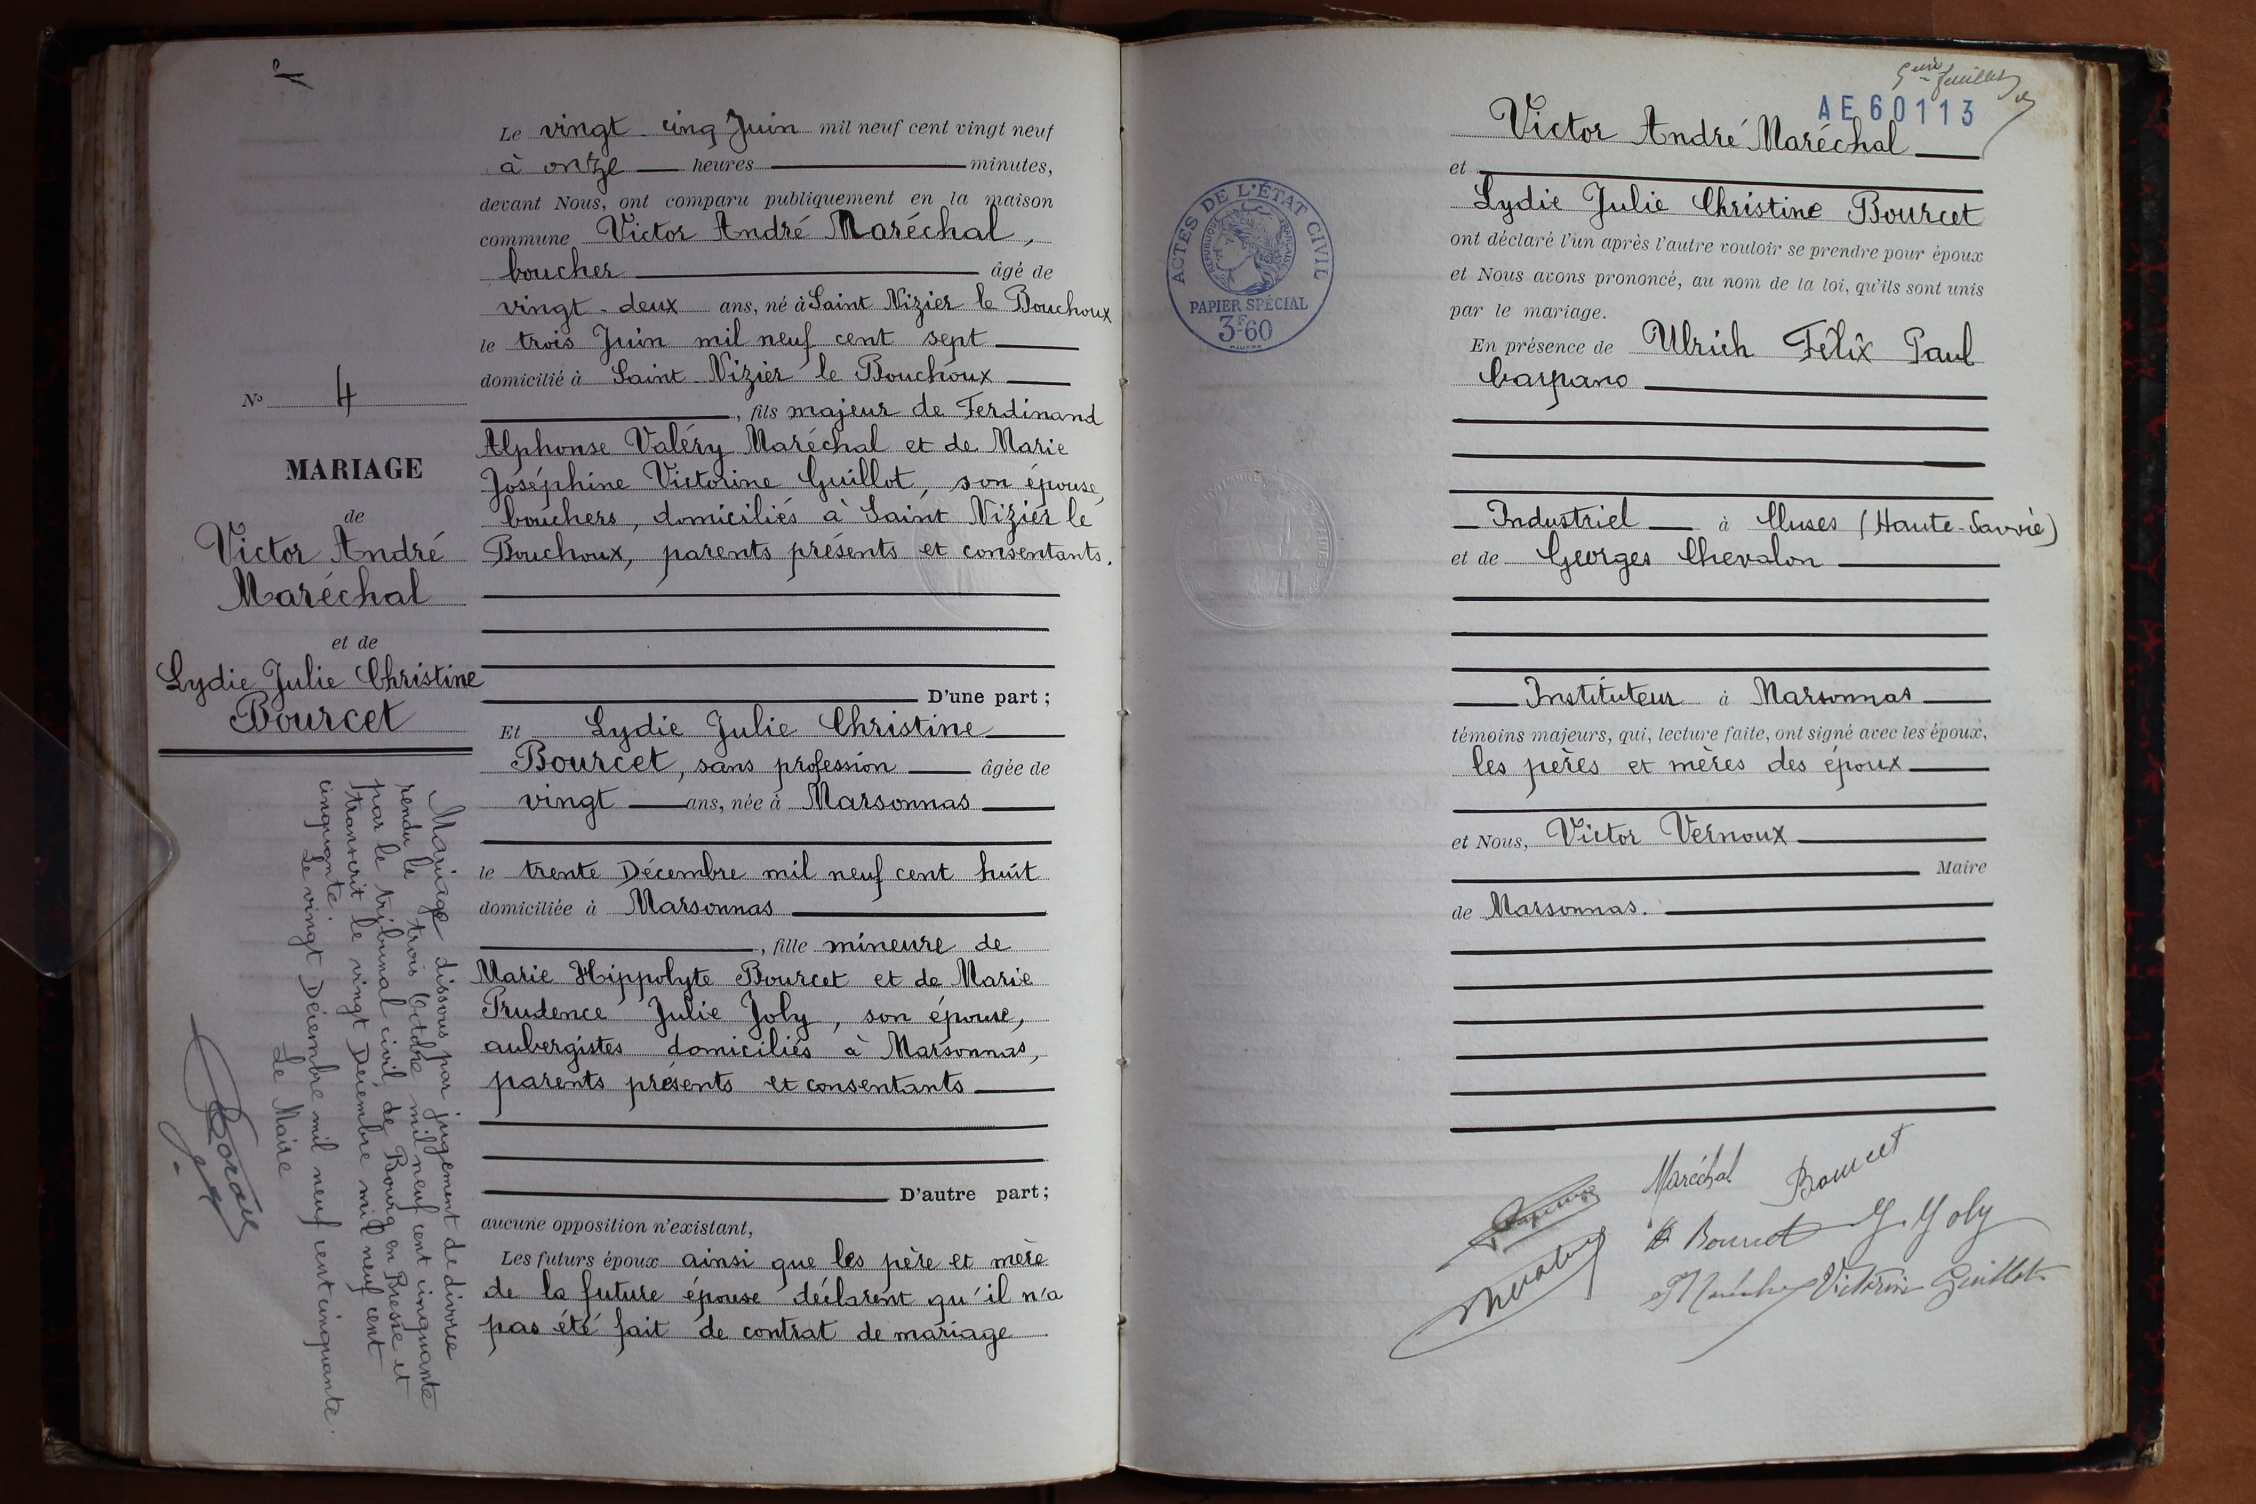 Le vingt cinq Juin mil neuf cent vingt neuf
à onze heures minutes,
devant Nous, ont comparu publiquement en la maison
commune Victor André Maréchal,
boucher âgé de
vingt-deux ans, né à Saint Nizier le Bouchoux
le trois Juin mil neuf cent sept
domicilié à Saint Nizier le Bouchoux
, fils majeur de Ferdinand
Alphonse Valéry Maréchal et de Marie
Joséphine Victorine Guillot, son épouse,
bouchers, domiciliés à Saint Nizier le
Bouchoux, parents présents et consentants.
D'une part;
Et Lydie Julie Christine
Bourcet, sans profession âgée de
vingt ans, née à Marsonnas
le trente Décembre mil neuf cent huit
domiciliée à Marsonnas
, fille mineure de
Marie Hippolyte Bourcet et de Marie
Prudence Julie Joly, son épouse,
aubergistes domiciliés à Marsonnas,
parents présents et consentants
D'autre part;
aucune opposition n'existant,
Les futurs époux ainsi que les père et mère
de la future épouse déclarent qu'il n'a
pas été fait de contrat de mariage
No 4
MARIAGE
de
Victor André
Maréchal
et de
Lydie Julie Christine
Bourcet
Mariage dissous par jugement de divorce
rendu le trois Octobre mil neuf cent cinquante
par le tribunal civil de Bourg en Bresse et
transcrit le vingt Décembre mil neuf cent
cinquante.
Le vingt Décembre mil neuf cent cinquante.
Le Maire
5ème feuillet
AE60113
Victor André Maréchal
et
Lydie Julie Christine Bourcet
ont déclaré l'un après l'autre vouloir se prendre pour époux
et Nous avons prononcé, au nom de la loi, qu'ils sont unis
par le mariage.
En présence de Ulrich Félix Paul
Carpano
Industriel à Cluses (Haute-Savoie)
et de Georges Chevalon
Instituteur à Marsonnas
témoins majeurs, qui, lecture faite, ont signé avec les époux,
les pères et mères des époux
et Nous, Victor Vernoux
Maire
de Marsonnas.
ACTES DE L'ÉTAT CIVIL
RÉPUBLIQUE FRANÇAISE
PAPIER SPÉCIAL
3F60
Maréchal Bourcet
Bourcet J. Joly
Victorine Guillot